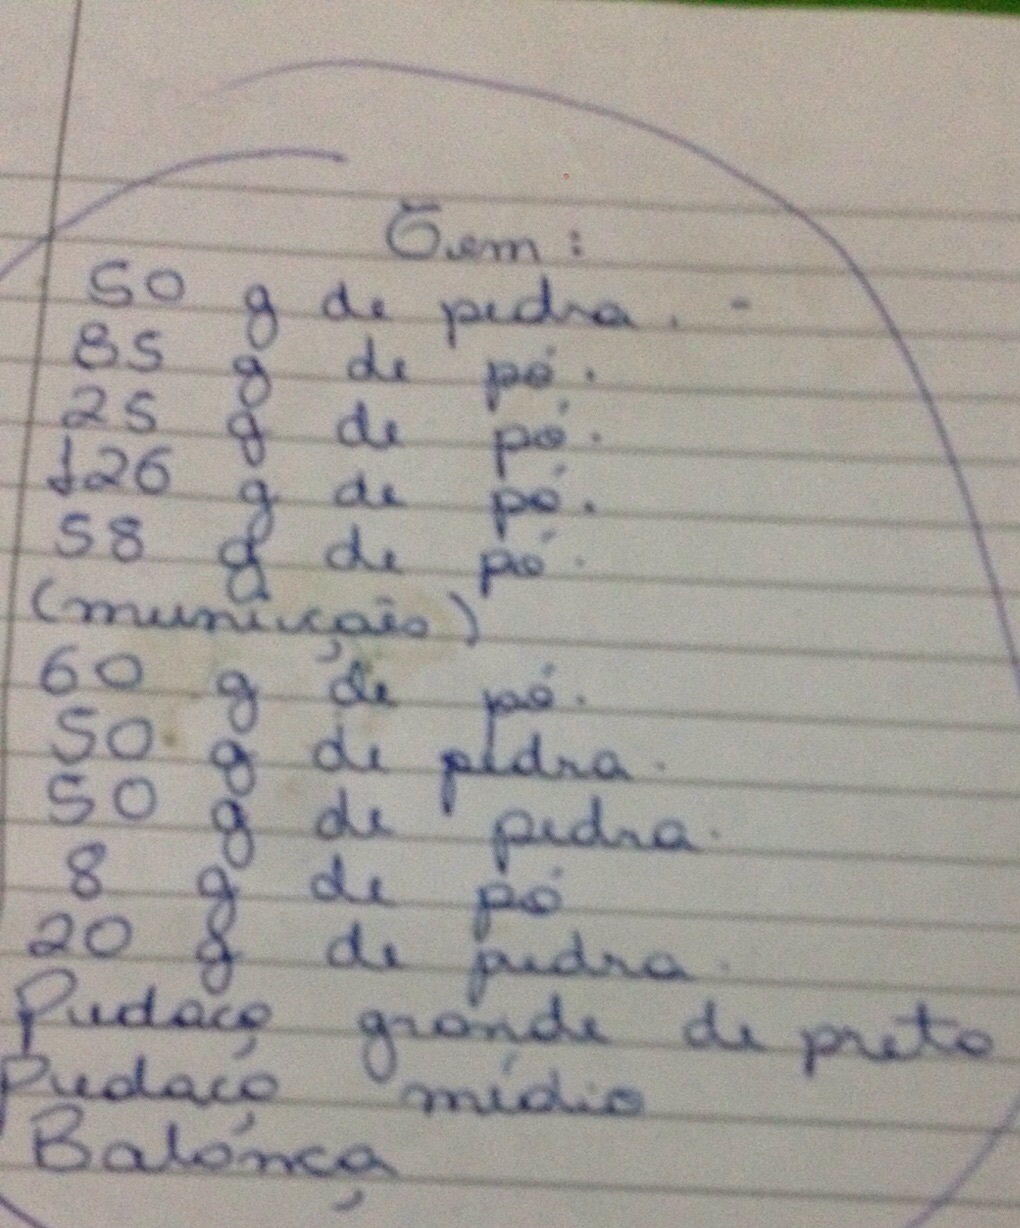 Tem:
50 g de pedra. -
85 g de pó.
25 g de pó.
126 g de pó.
58 g de pó.
(munição)
60 g de pó.
50 g de pedra.
50 g de pedra.
8 g de pó
20 g de pedra.
Pedaço grande de preto
Pedaço médio
Balança